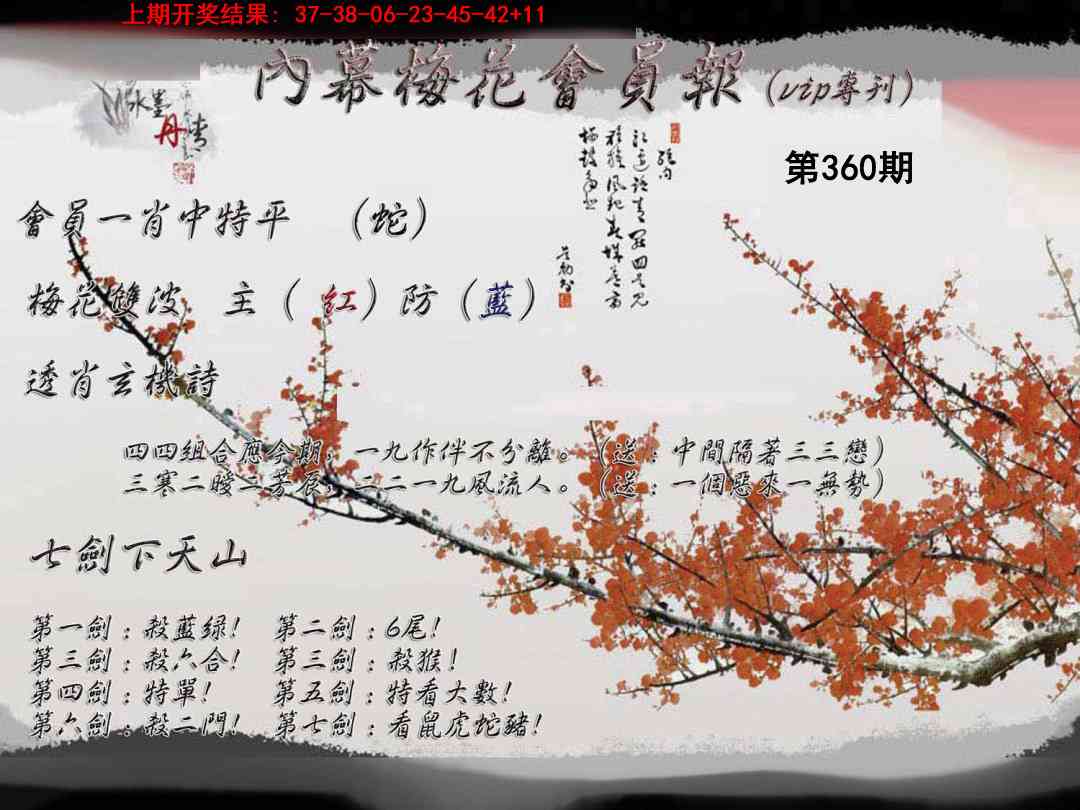 上期开奖结果: 37-38-06-23-45-42+11
內幕梅花會員報(vip專刊)
水墨
丹青
第360期
會員一肖中特平 (蛇)
梅花雙波 主(紅)防(藍)
透肖玄機詩
四四組合應今期,一九作伴不分離。(送:中間隔著三三戀)
三寒二暖二芳辰,二二一九風流人。(送:一個惡來一無勢)
七劍下天山
第一劍:殺藍绿! 第二劍:6尾!
第三劍:殺六合! 第三劍:殺猴!
第四劍:特單! 第五劍:特看大數!
第六劍:殺二門! 第七劍:看鼠虎蛇豬!